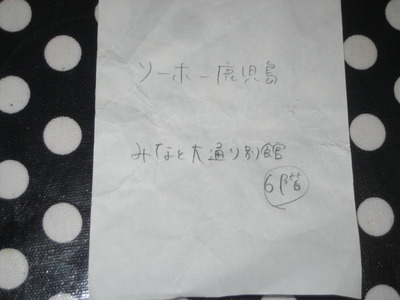 ソーホー鹿児島
みなと大通り別館
6階